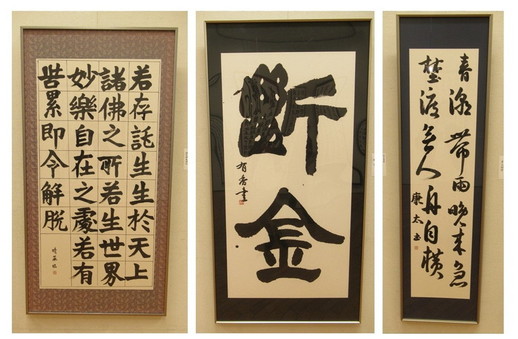 若存託生生於天上
諸佛之所若生世界
妙樂自在之處若有
苦累即令解脱
斷金
春潮帶雨晚来急
埜渡無人舟自横
康太書